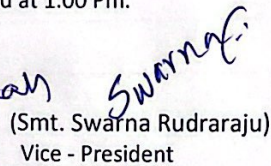 d at 1.00 Pm.
Swarna
(Smt. Swarna Rudraraju)
Vice - President